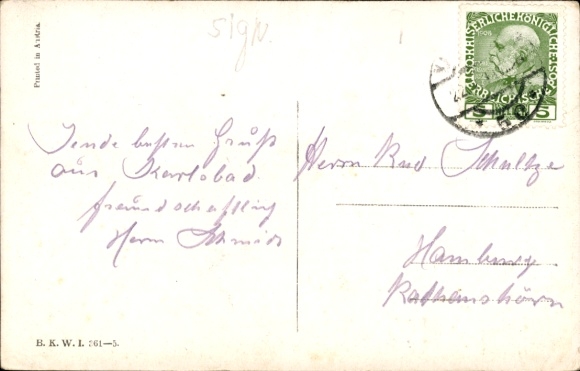 Printed in Austria.
sign.
KAISERLICHE KÖNIGLICHE
ÖSTERREICHISCHE POST
5 5
Sende besten Gruß
aus Karlsbad
freundschaftlich
Herm Schmidt
Herrn Rud Schultze
Hamburg
Rathaushörn
B. K. W. I. 361—5.